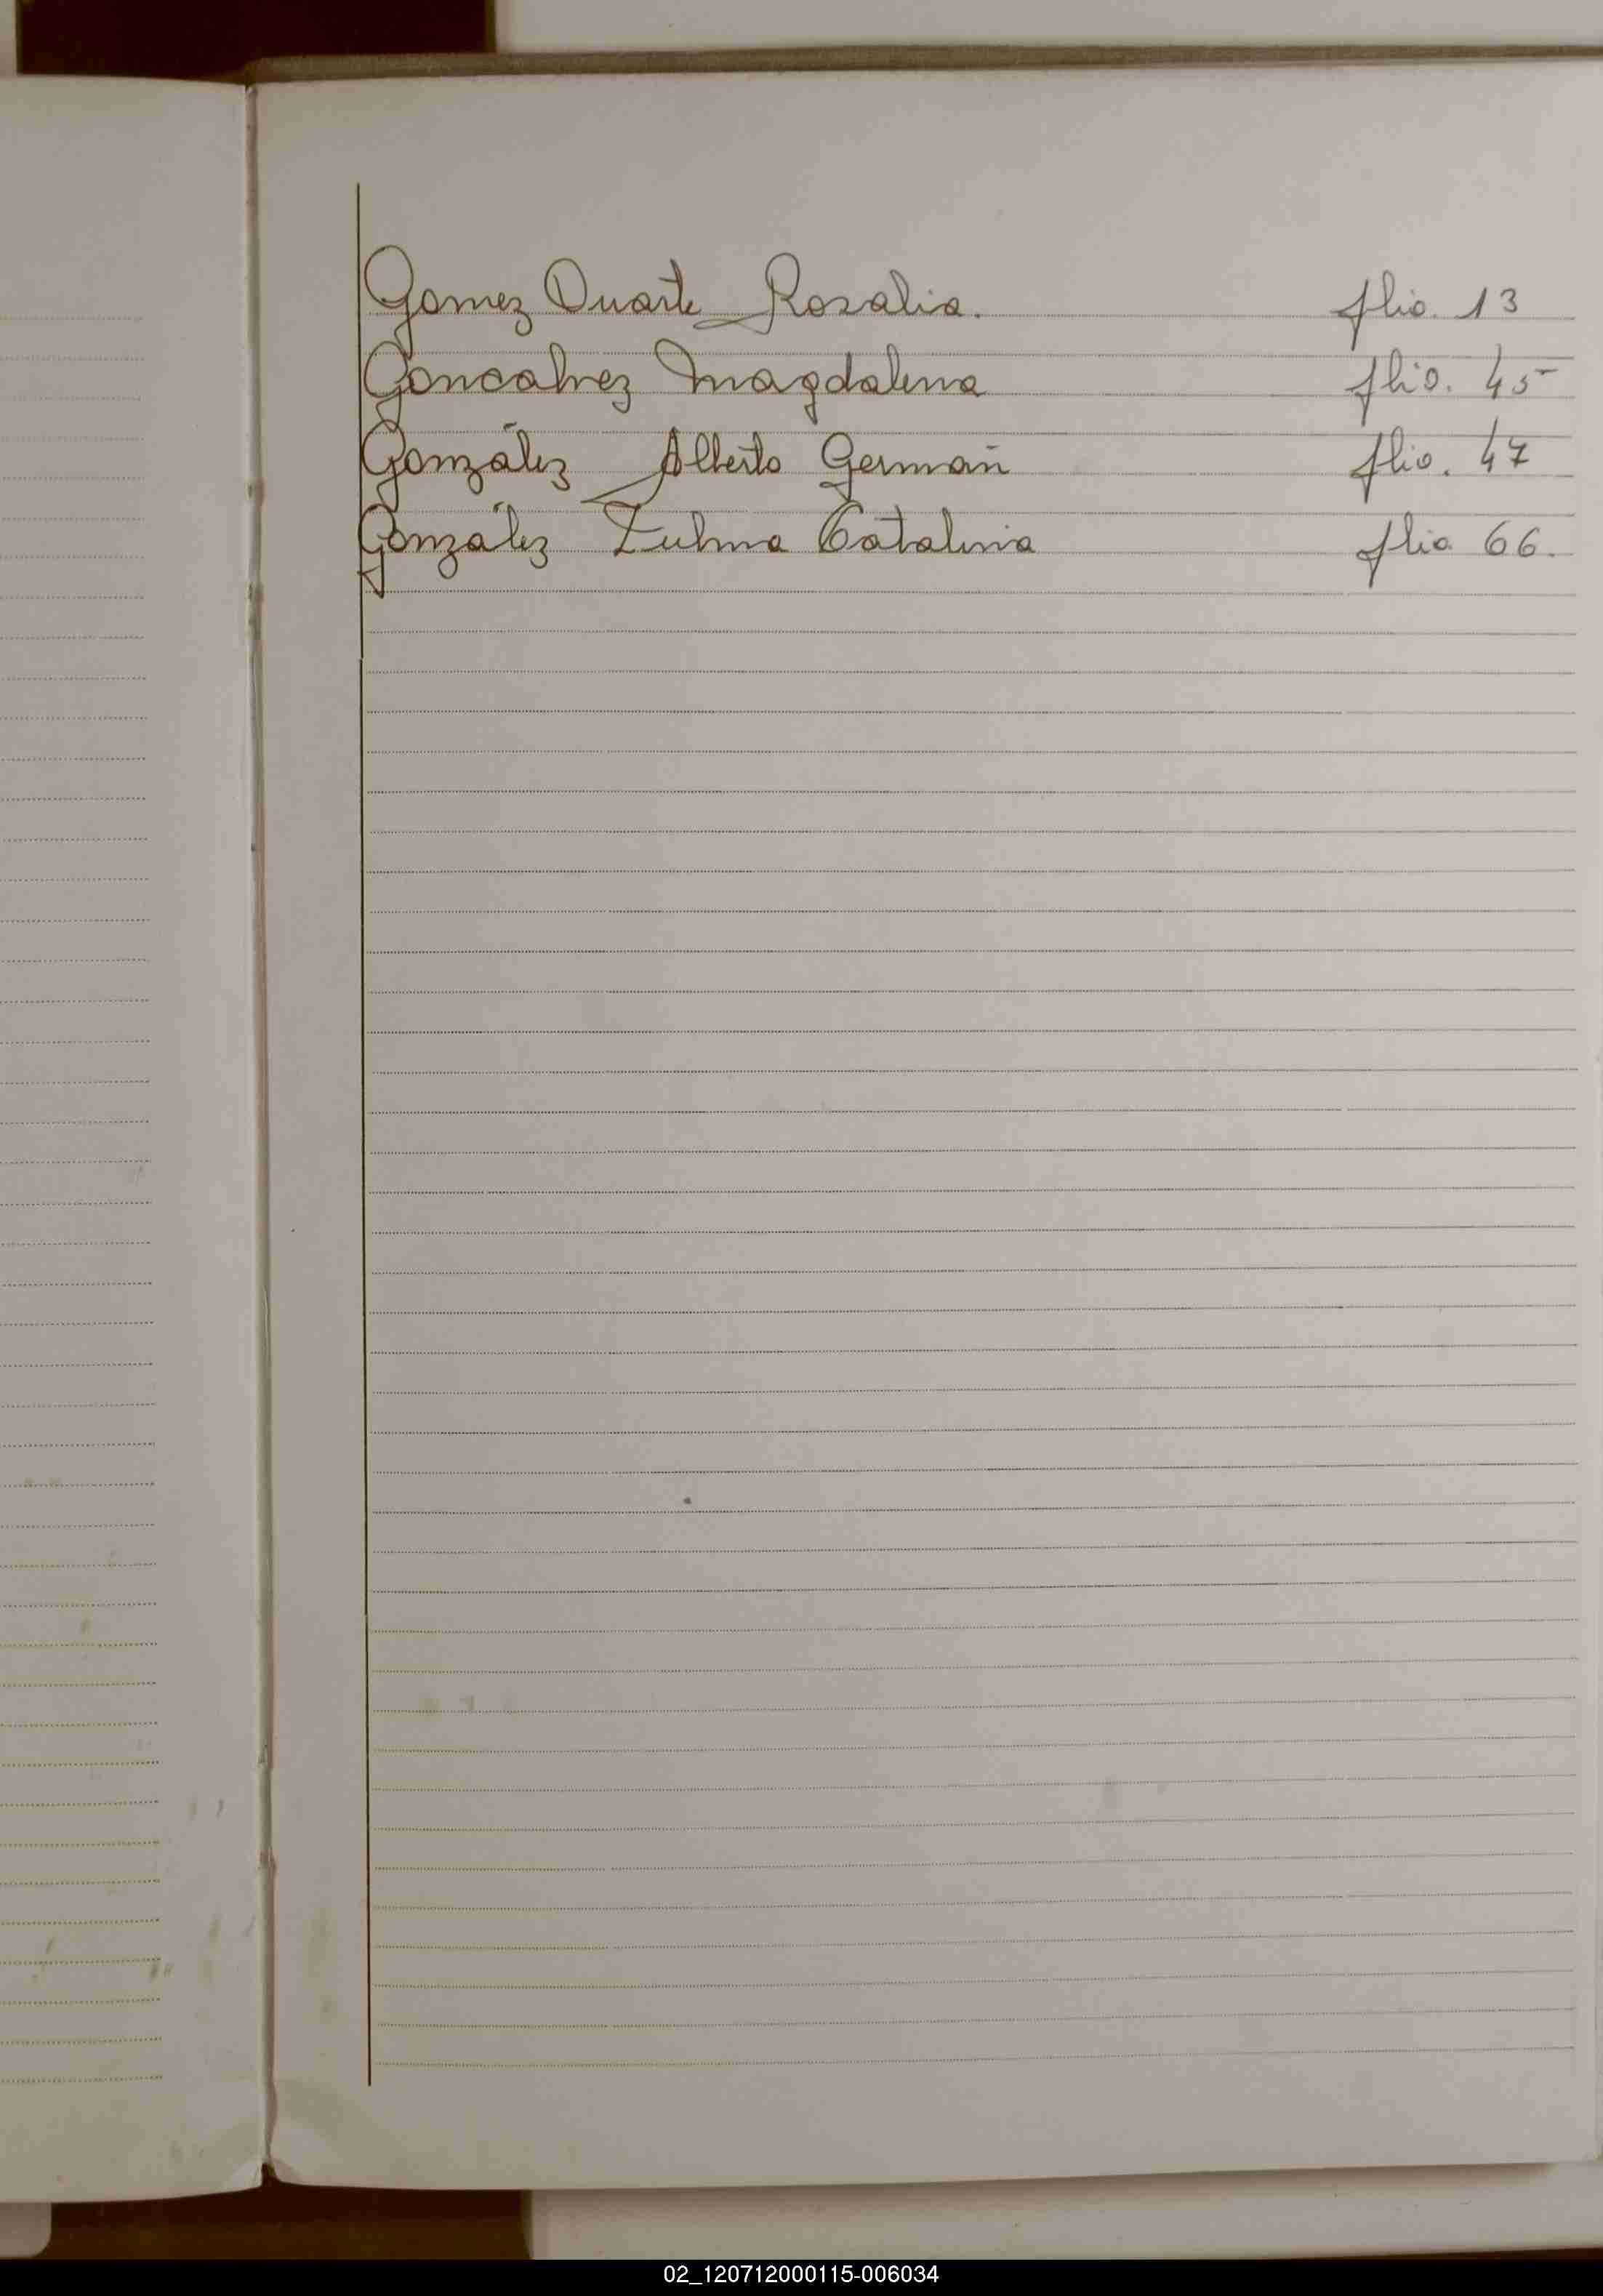 Gomez Duarte Rosalia. flio. 13
Goncalvez Magdalena flio. 45
González Alberto Germán flio. 47
González Zulma Catalina flio 66.
02_120712000115-006034